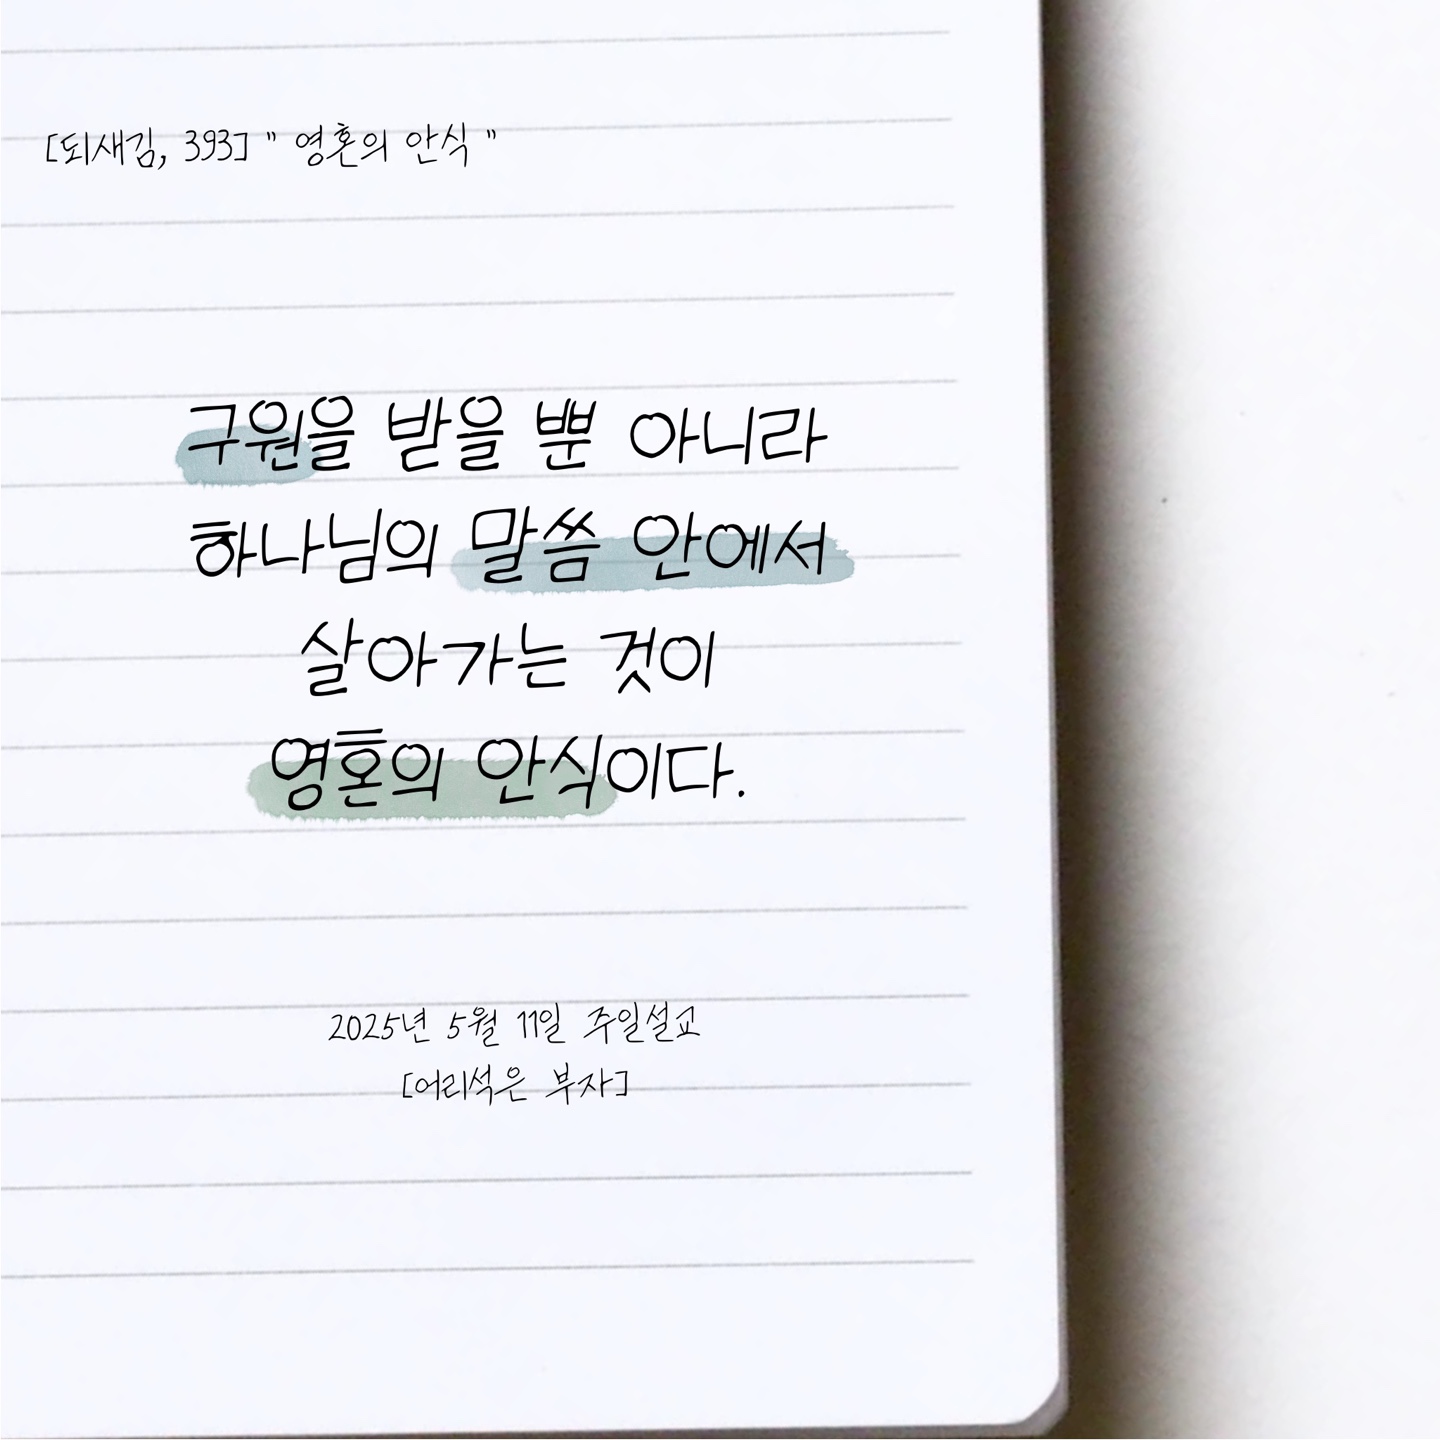 [되새김, 393] " 영혼의 안식 "
구원을 받을 뿐 아니라
하나님의 말씀 안에서
살아가는 것이
영혼의 안식이다.
2025년 5월 11일 주일설교
[어리석은 부자]